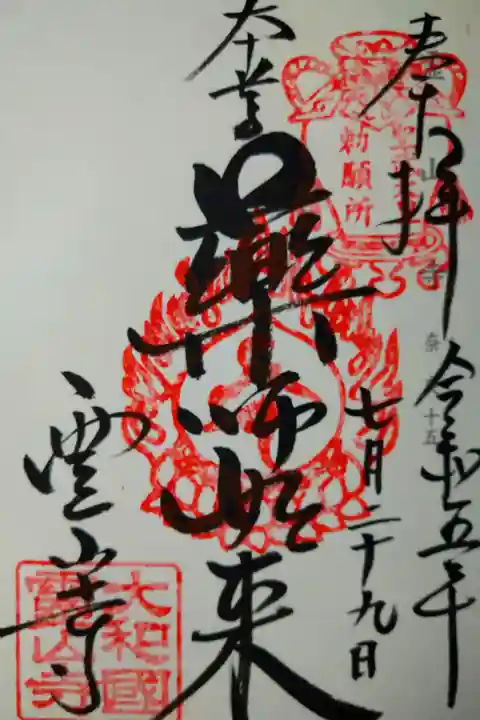 奉拝
令和五年
七月二十九日
勅願所
山寺
奈
十五
本尊
薬師如来
霊山寺
大和國
霊山寺